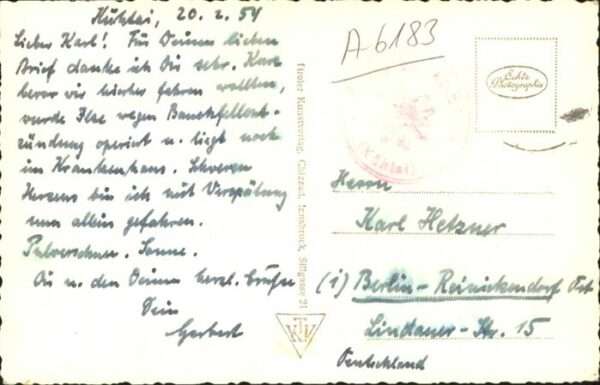 Kühtai, 20. 2. 54
Lieber Karl! Für Deinen lieben
Brief danke ich Dir sehr. Kurz
bevor wir hierher fahren wollten,
wurde Ilse wegen Bauchfellent-
zündung operiert u. liegt noch
im Krankenhaus. Schweren
Herzens bin ich mit Verspätung
nun allein gefahren.
Pulverschnee. Sonne.
Dir u. den Deinen herzl. Grüße
Dein
Gerbert
Tiroler Kunstverlag, Chizzali, Innsbruck, Sillgasse 21
KTV
A 6183
Echte
Photographie
Kühtai
Herrn
Karl Hetzner
(1) Berlin - Reinickendorf Ost
Lindauer - Str. 15
Deutschland